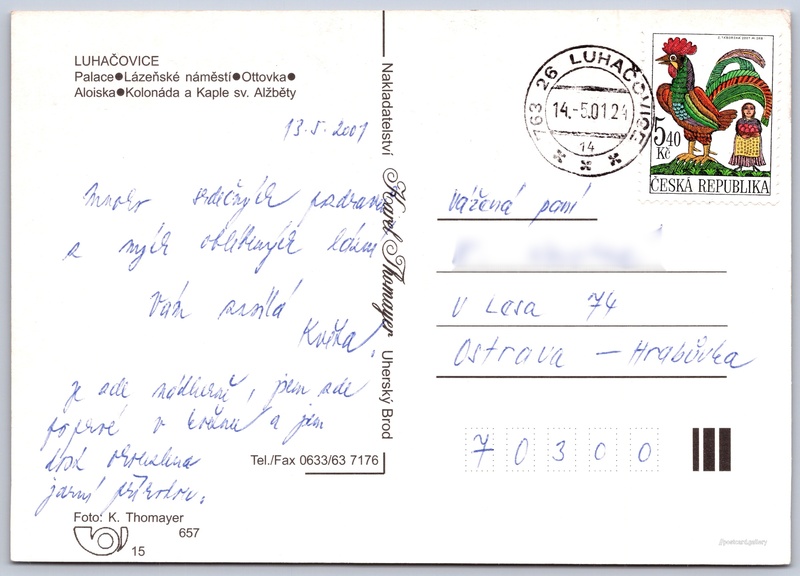 LUHAČOVICE
Palace●Lázeňské náměstí●Ottovka●
Aloiska●Kolonáda a Kaple sv. Alžběty
13.5.2001
Mnoho srdečných pozdravů
z mých oblíbených lázní
Vám zasílá
Květa.
Je zde nádherně, jsem zde
poprvé v květnu a jsem
dost okouzlena
jarní přírodou.
Tel./Fax 0633/63 7176
Foto: K. Thomayer
657
15
Nakladatelství Karel Thomayer Uherský Brod
763 26 LUHAČOVICE
14.-5.01 21
14
5,40
Kč
ČESKÁ REPUBLIKA
Vážená paní
V Lesa 74
Ostrava – Hrabůvka
70300